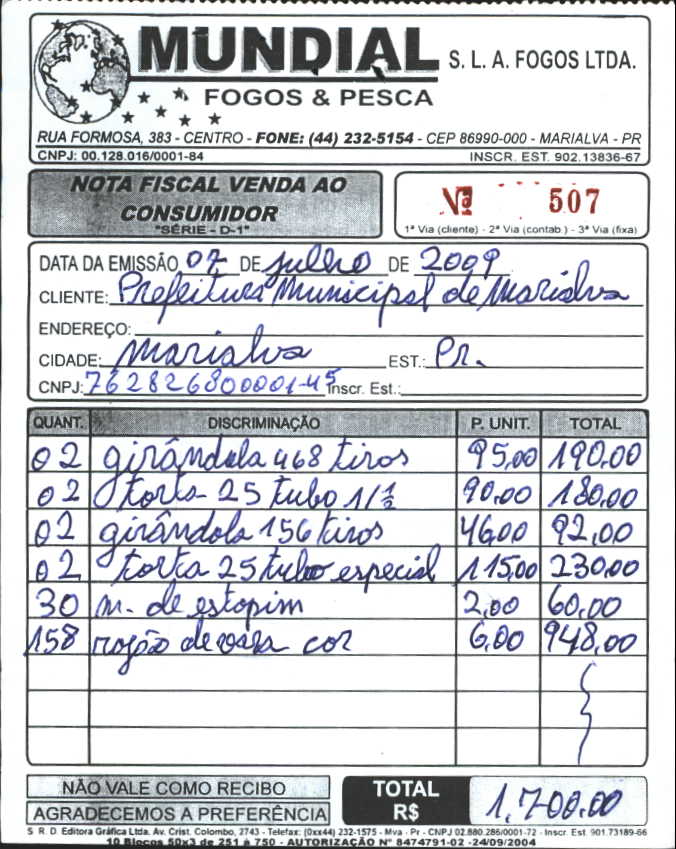 MUNDIAL S. L. A. FOGOS LTDA.
FOGOS & PESCA
RUA FORMOSA, 383 - CENTRO - FONE: (44) 232-5154 - CEP 86990-000 - MARIALVA - PR
CNPJ: 00.128.016/0001-84 INSCR. EST. 902.13836-67
NOTA FISCAL VENDA AO
CONSUMIDOR
"SÉRIE - D-1"
Nº 507
1ª Via (cliente) - 2ª Via (contab.) - 3ª Via (fixa)
DATA DA EMISSÃO 07 DE julho DE 2009
CLIENTE: Prefeitura Municipal de Marialva
ENDEREÇO:
CIDADE: Marialva EST.: Pr.
CNPJ: 762826800001-45 Inscr. Est.:
QUANT. DISCRIMINAÇÃO P. UNIT. TOTAL
02 girândola 468 tiros 95,00 190.00
02 torta 25 tubo 1 1/2 90.00 180.00
02 girândola 156 tiros 46,00 92,00
02 torta 25 tubo especial 115,00 230,00
30 m. de estopim 2,00 60,00
158 rojão de vara cor 6,00 948,00
NÃO VALE COMO RECIBO
AGRADECEMOS A PREFERÊNCIA
TOTAL
R$ 1.700.00
S R D Editora Gráfica Ltda. Av. Crist. Colombo, 2743 - Telefax: (0xx44) 232-1575 - Mva - Pr - CNPJ 02.880.286/0001-72 - Inscr. Est 901.73189-66
10 Blocos 50x3 de 251 à 750 - AUTORIZAÇÃO Nº 8474791-02 -24/09/2004